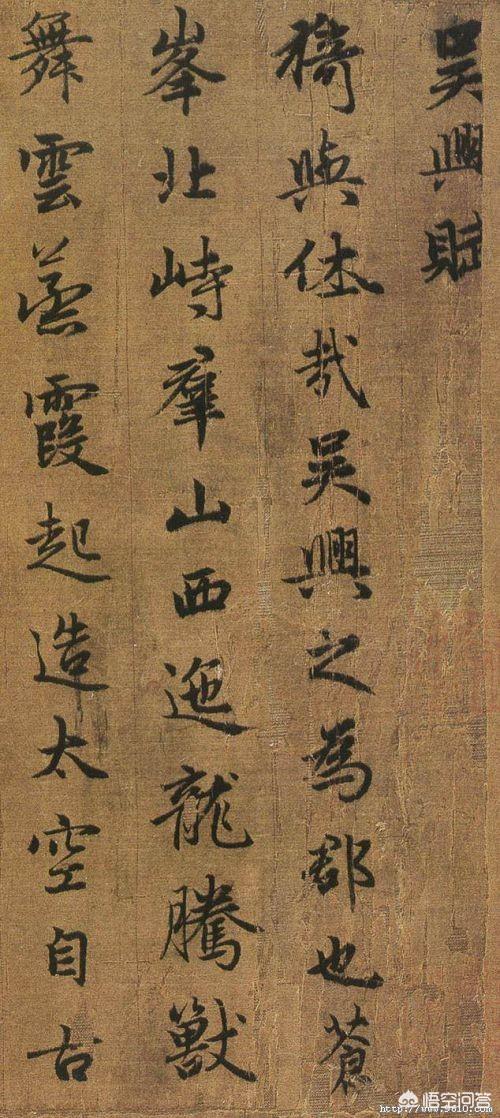 吳興賦
猗與休哉吳興之為郡也蒼
峯北峙羣山西迤龍騰獸
舞雲蒸霞起造太空自古
悟空问答
http://www.9610.com